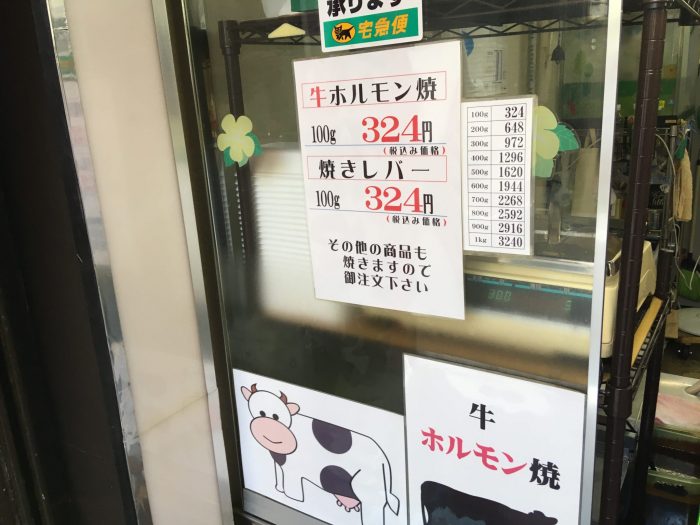 承ります
宅急便
牛ホルモン焼
100g 324円
(税込み価格)
焼きレバー
100g 324円
(税込み価格)
その他の商品も
焼きますので
御注文下さい
100g 324
200g 648
300g 972
400g 1296
500g 1620
600g 1944
700g 2268
800g 2592
900g 2916
1kg 3240
牛
ホルモン焼